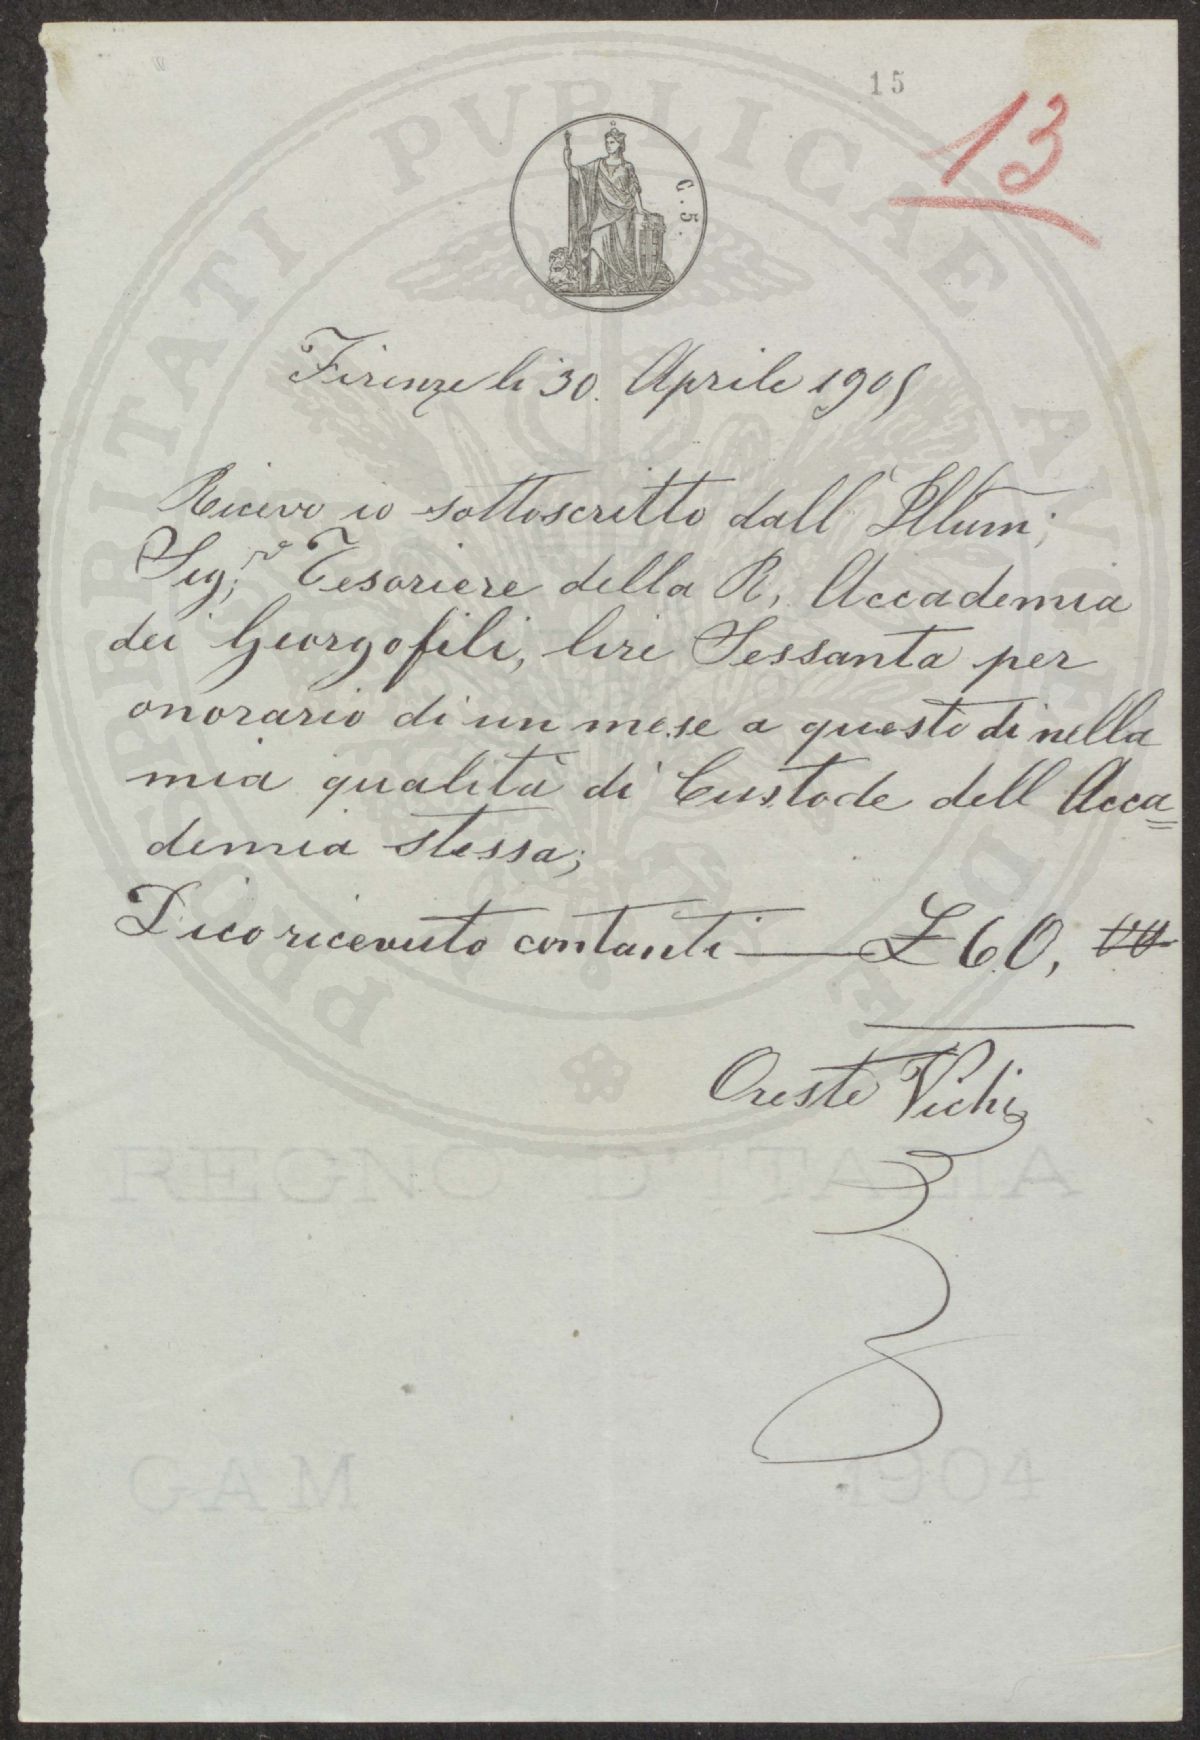 15
13
C. 5.
Firenze li 30. Aprile 1905
Ricevo io sottoscritto dall' Illum;
Sig;r Tesoriere della R, Accademia
dei Georgofili, lire Sessanta per
onorario di un mese a questo di nella
mia qualità di Custode dell Acca=
demia stessa;
Dico ricevuto contanti — £ 60, 00
Oreste Vichi
PROSPERITATI PVBLICAE AVGENDAE
REGNO D'ITALIA
GAM 1904